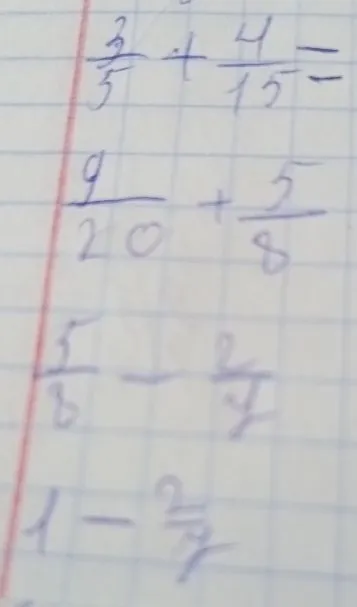 3/5 + 4/15 =
9/20 + 5/8
5/8 - 2/7
1 - 2/7